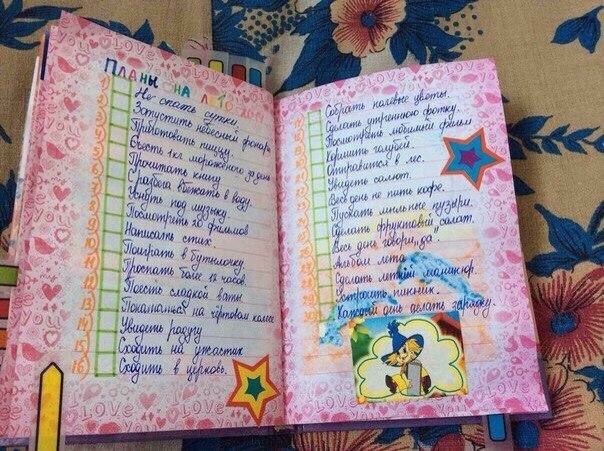 ПЛАНЫ НА ЛЕТО
1) Не спать сутки
Запустить небесный фонарь
Приготовить пиццу.
Съесть 1 кг мороженого за день
Прочитать книгу
С разбега вбежать в воду.
Уснуть под музыку.
Посмотреть 20 фильмов
Написать стих.
10 Поиграть в бутылочку.
Проспать более 12 часов.
12 Поесть сладкой ваты
13 Покататься на чёртовом колесе
14 Увидеть радугу
15 Сходить на ужастик
16) Сходить в церковь.
Собрать полевые цветы.
Сделать утреннюю фотку.
Посмотреть любимый фильм
Кормить голубей.
Отправится в лес.
Увидеть салют.
Весь день не пить кофе.
Пускать мыльные пузыри.
Сделать фруктовый салат.
Весь день говори „да".
Альбом лета
Сделать летний маникюр.
Устроить пикник.
Каждый день делать зарядку.
LOVE
LOVE
LOVE